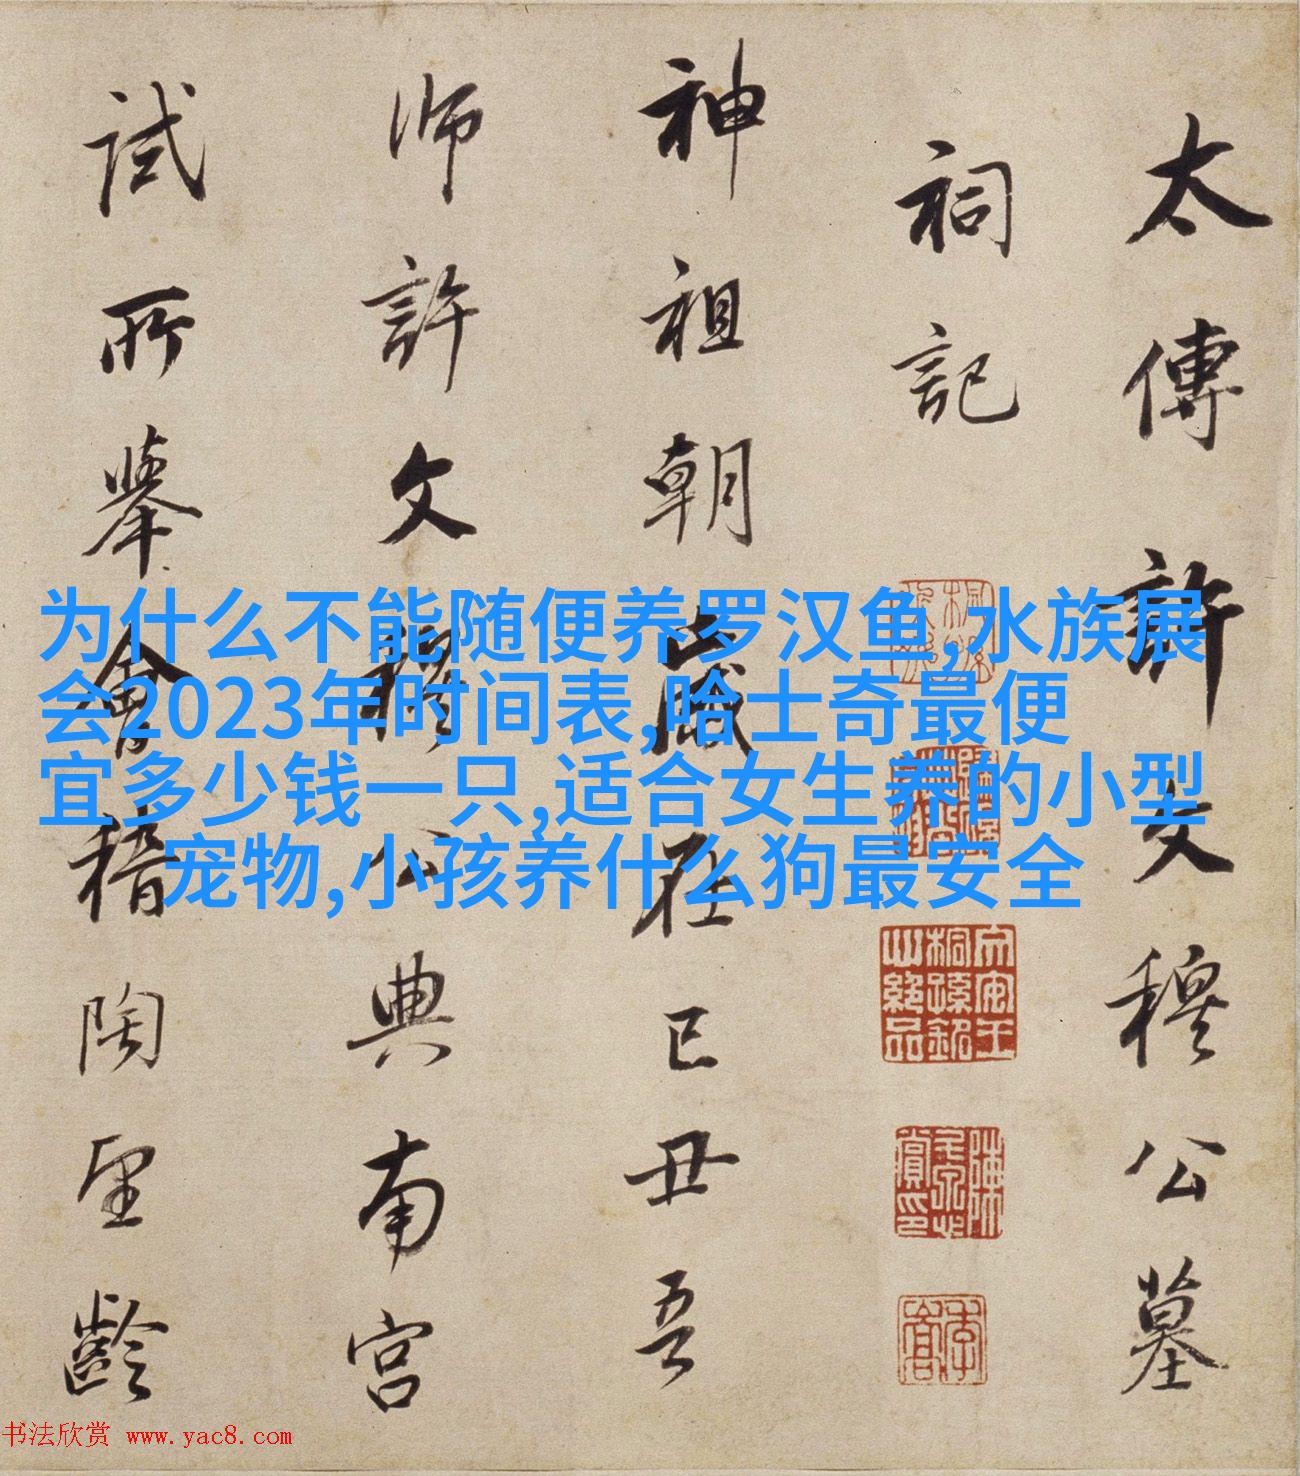 太傳許文穆公墓
祠記
神祖朝歲在己丑吾
師許文穆公典南宮
試所舉會稽陶望齡
为什么不能随便养罗汉鱼,水族展
会2023年时间表,哈士奇最便
宜多少钱一只,适合女生养的小型
宠物,小孩养什么狗最安全
书法欣赏 www.yac8.com